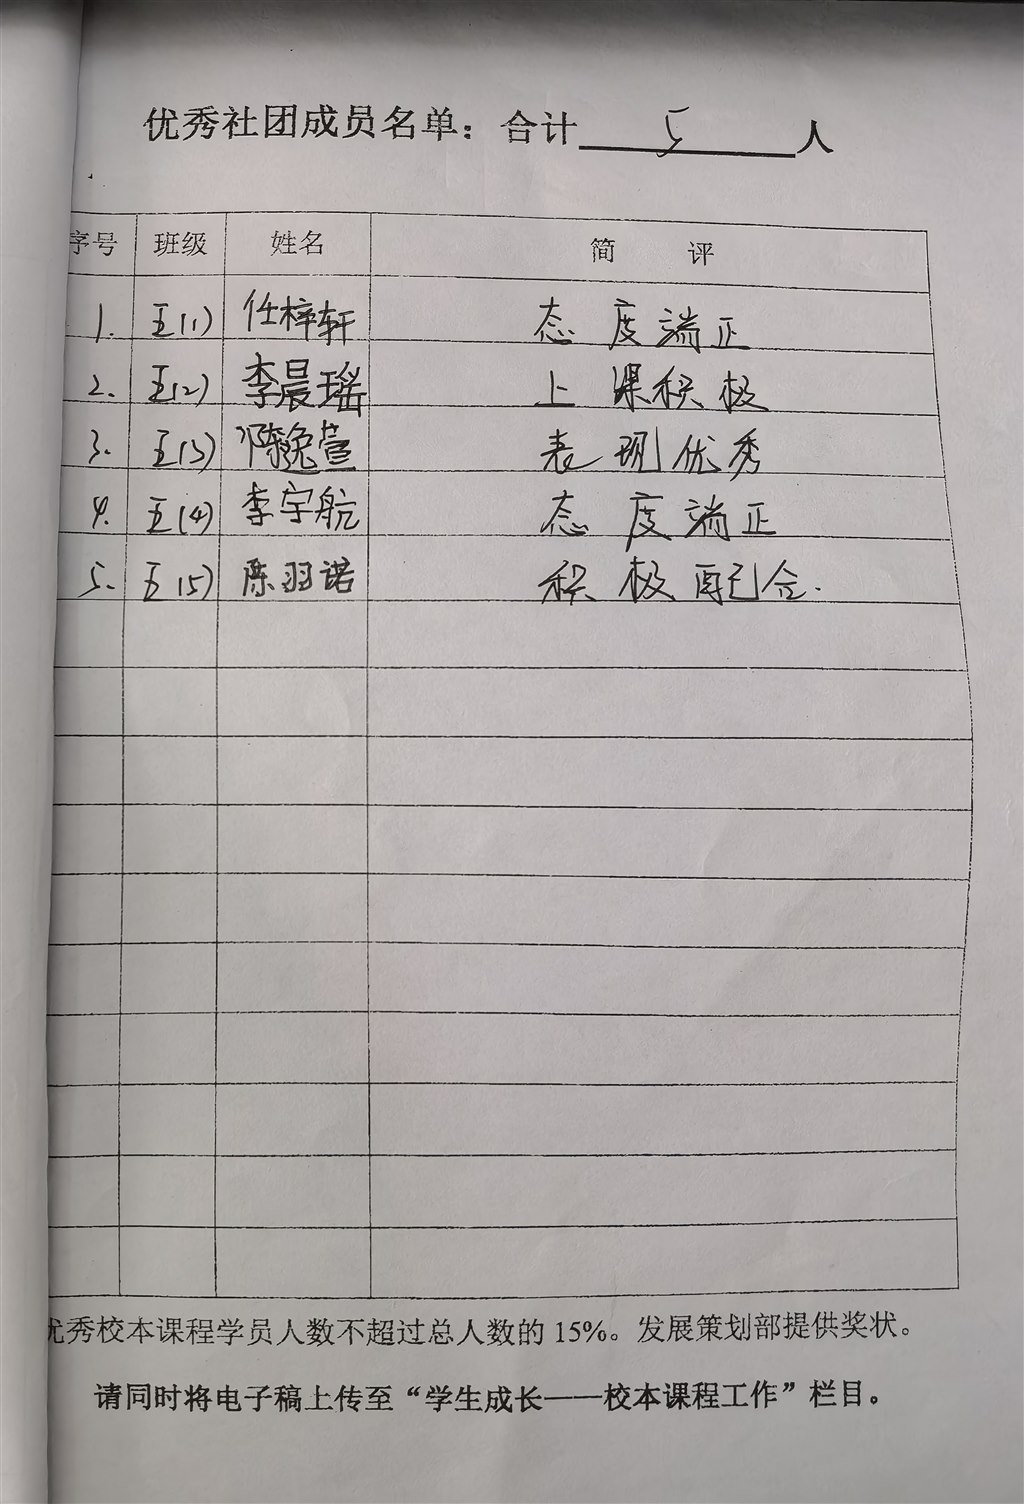 优秀社团成员名单：合计5人
序号 班级 姓名 简 评
1. 五(1) 任梓轩 态度端正
2. 五(2) 李晨瑶 上课积极
3. 五(3) 陈逸萱 表现优秀
4. 五(4) 李宇航 态度端正
5. 五(5) 陈羽诺 积极配合.
优秀校本课程学员人数不超过总人数的15%。发展策划部提供奖状。
请同时将电子稿上传至“学生成长——校本课程工作”栏目。